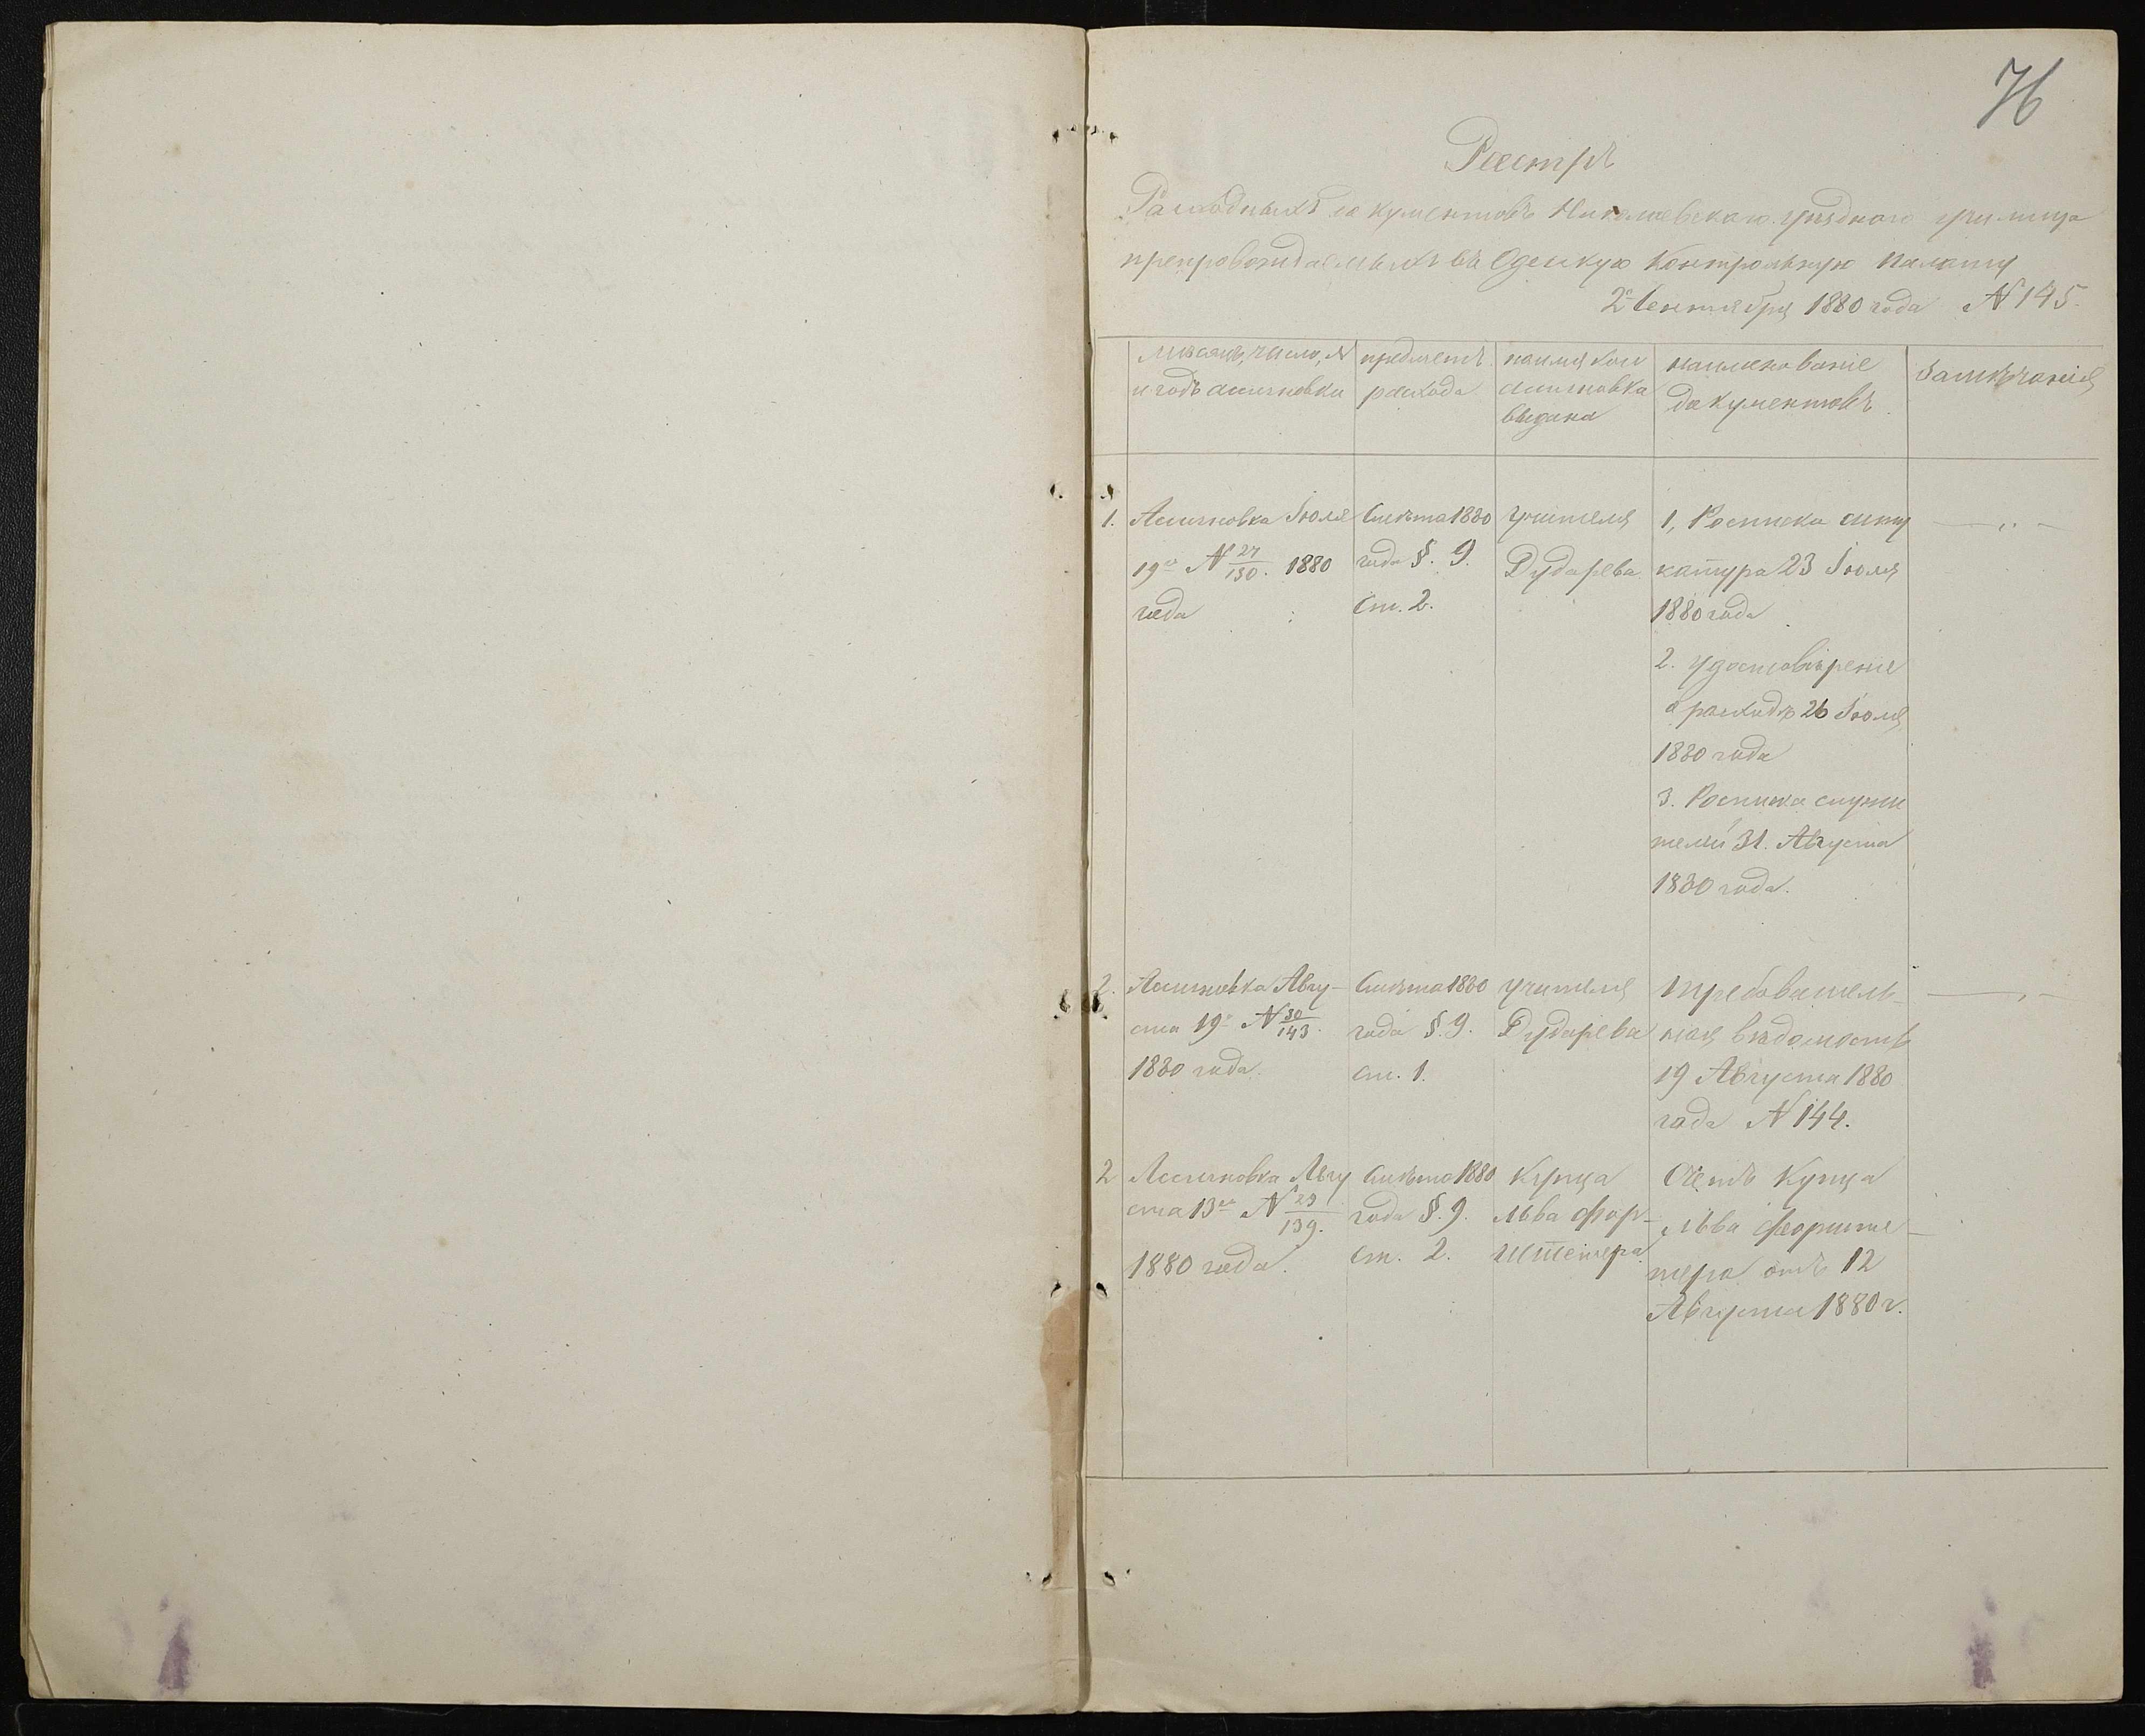 76
Реестръ
Расходныхъ документовъ Николаевскаго уѣзднаго училища
препровождаемыхъ въ Одескую Контрольную палату
2го Сентября 1880 года N 145.
мѣсяцъ, число, N
и годъ асигновки
предметъ
расхода
на имя кого
асигновка
выдана
наименованіе
документовъ
Замѣчанія
1. Асигновка Іюля
19го N 27/130. 1880
года
Смѣта 1880
года §. 9.
Ст. 2.
учителя
Дударева
1, Росписка
катура 23 Іюля
1880 года
2. Удостовѣреніе
о расходѣ 26 Іюля
1880 года
3. Росписка служи
телей 31. Августа
1880 года.
2. Асигновка Авгу-
ста 19го N 30/143.
1880 года.
Смѣта 1880
года §. 9.
ст. 1.
учителя
Дударева
требователь-
ная вѣдомость
19 Августа 1880
года N 144.
2 Асигновка Авгу
ста 13го N 29/139.
1880 года.
Смѣта 1880
года §. 9.
ст. 2.
Купца
Льва Фор-
штетера
Счетъ Купца
Льва Форште-
тера отъ 12
Августа 1880 г.